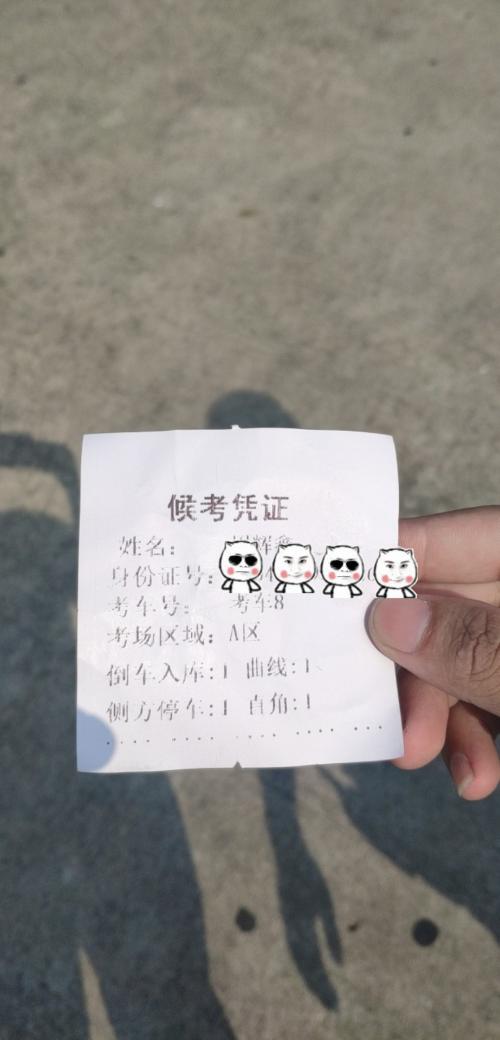 候考凭证
姓名：
身份证号：
考车号： 考车8
考场区域：A区
倒车入库:1 曲线:1
侧方停车:1 直角:1